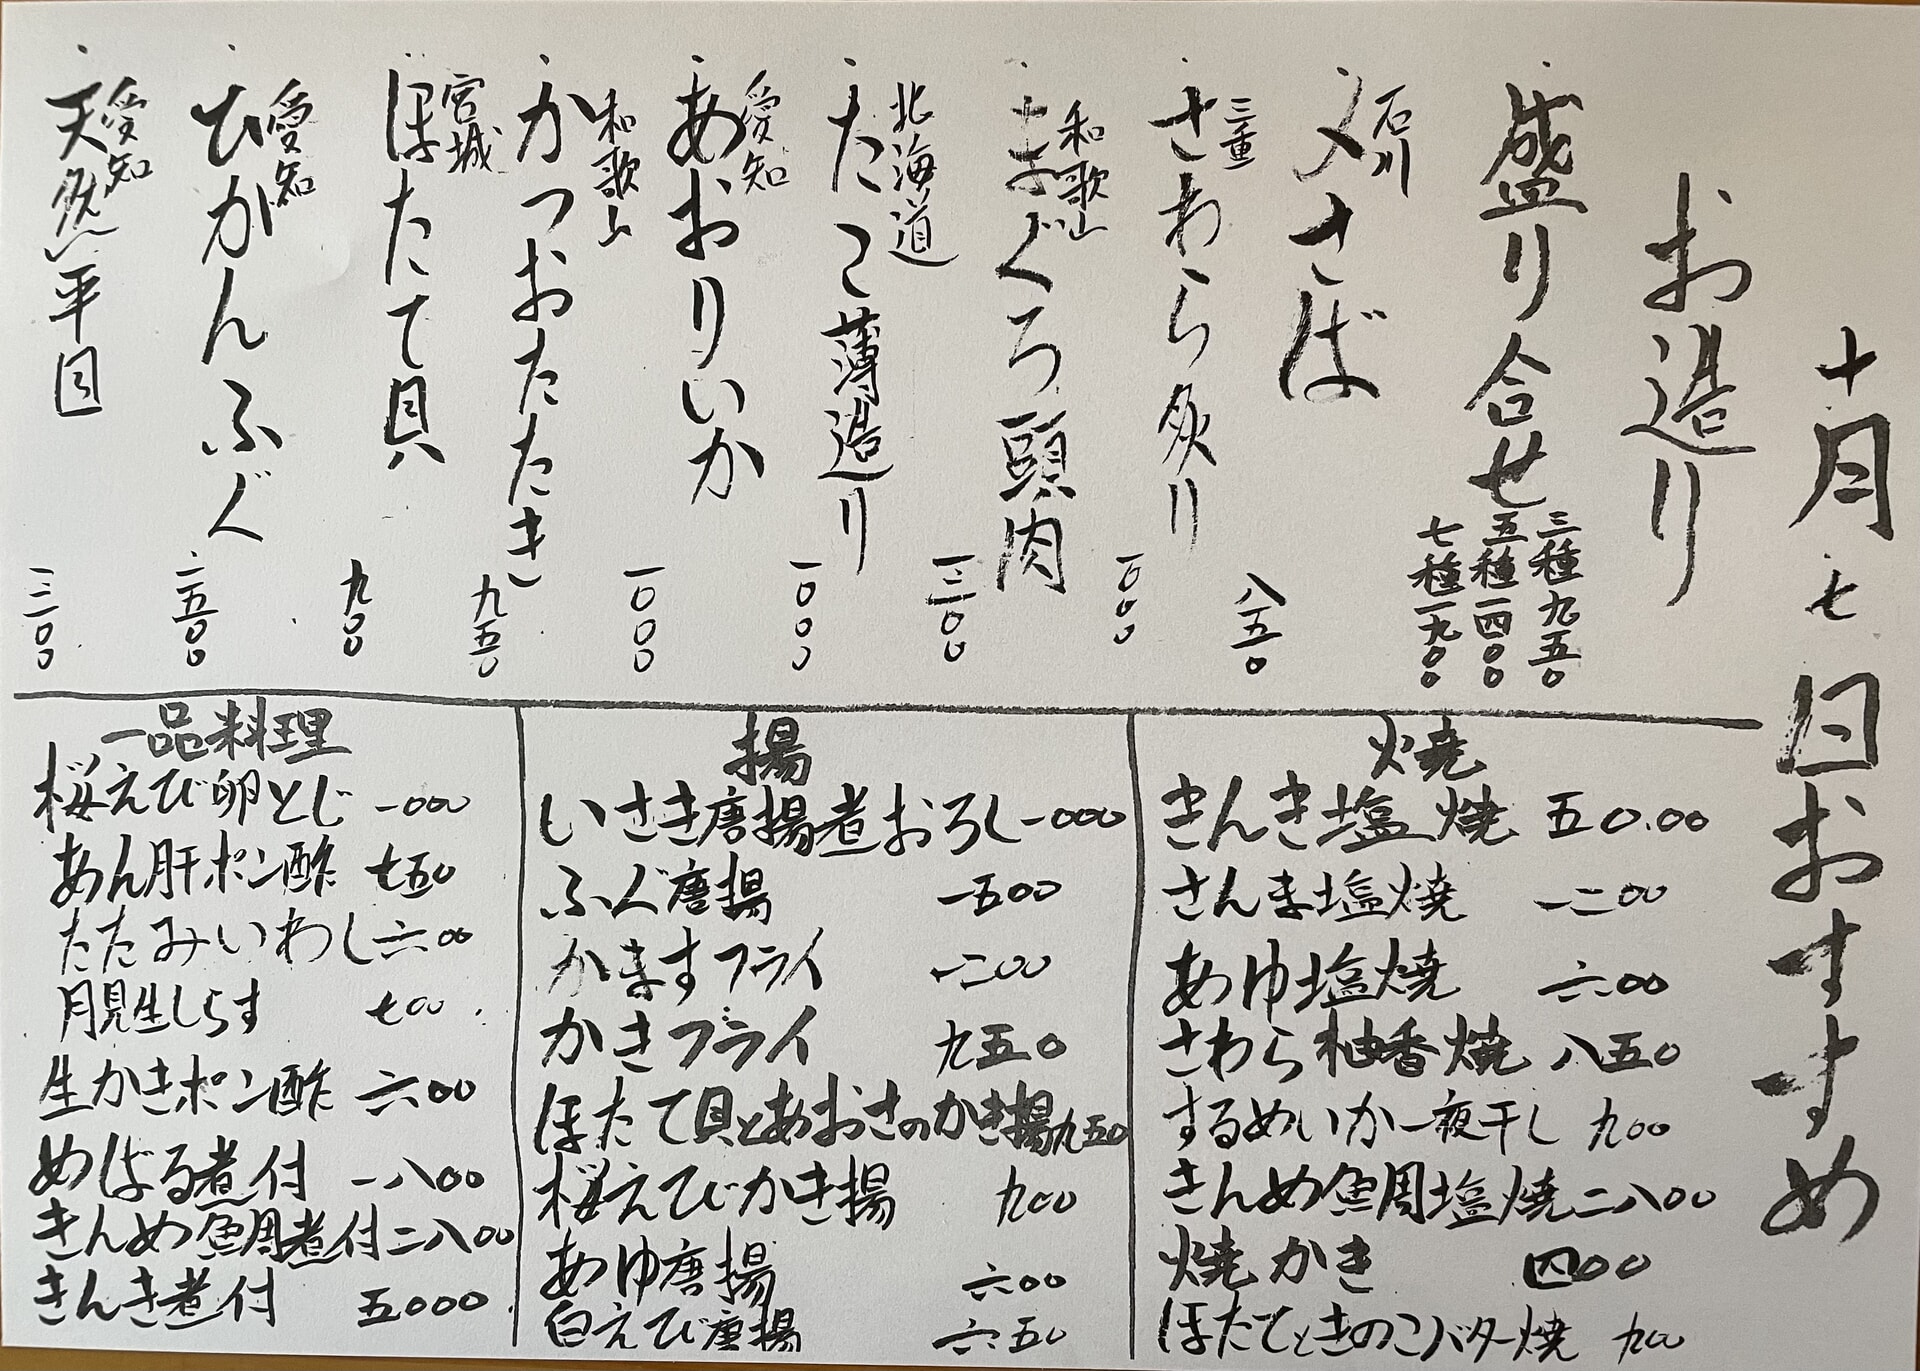 十月七日おすすめ
お造り
盛り合せ
三種九五〇
五種一四〇〇
七種一九〇〇
石川
〆さば 八五〇
三重
さわら炙り 一〇〇〇
和歌山
まぐろ頭肉 一三〇〇
北海道
たこ薄造り 一〇〇〇
愛知
あおりいか 一〇〇〇
和歌山
かつおたたき 九五〇
宮城
ほたて貝 九〇〇
愛知
ひがんふぐ 一五〇〇
愛知
天然平目 一三〇〇
焼
きんき塩焼 五〇.〇〇
さんま塩焼 一二〇〇
あゆ塩焼 六〇〇
さわら柚香焼 八五〇
するめいか一夜干し 九〇〇
きんめ魚周塩焼 二八〇〇
焼かき 四〇〇
ほたてときのこバター焼 九〇〇
揚
いさき唐揚煮おろし 一〇〇〇
ふぐ唐揚 一五〇〇
かますフライ 一二〇〇
かきフライ 九五〇
ほたて貝とあおさのかき揚 九五〇
桜えびかき揚 九〇〇
あゆ唐揚 六〇〇
白えび唐揚 六五〇
一品料理
桜えび卵とじ 一〇〇〇
あん肝ポン酢 七五〇
たたみいわし 六〇〇
月見生しらす 七〇〇
生かきポン酢 六〇〇
めばる煮付 一八〇〇
きんめ魚周煮付 二八〇〇
きんき煮付 五〇〇〇